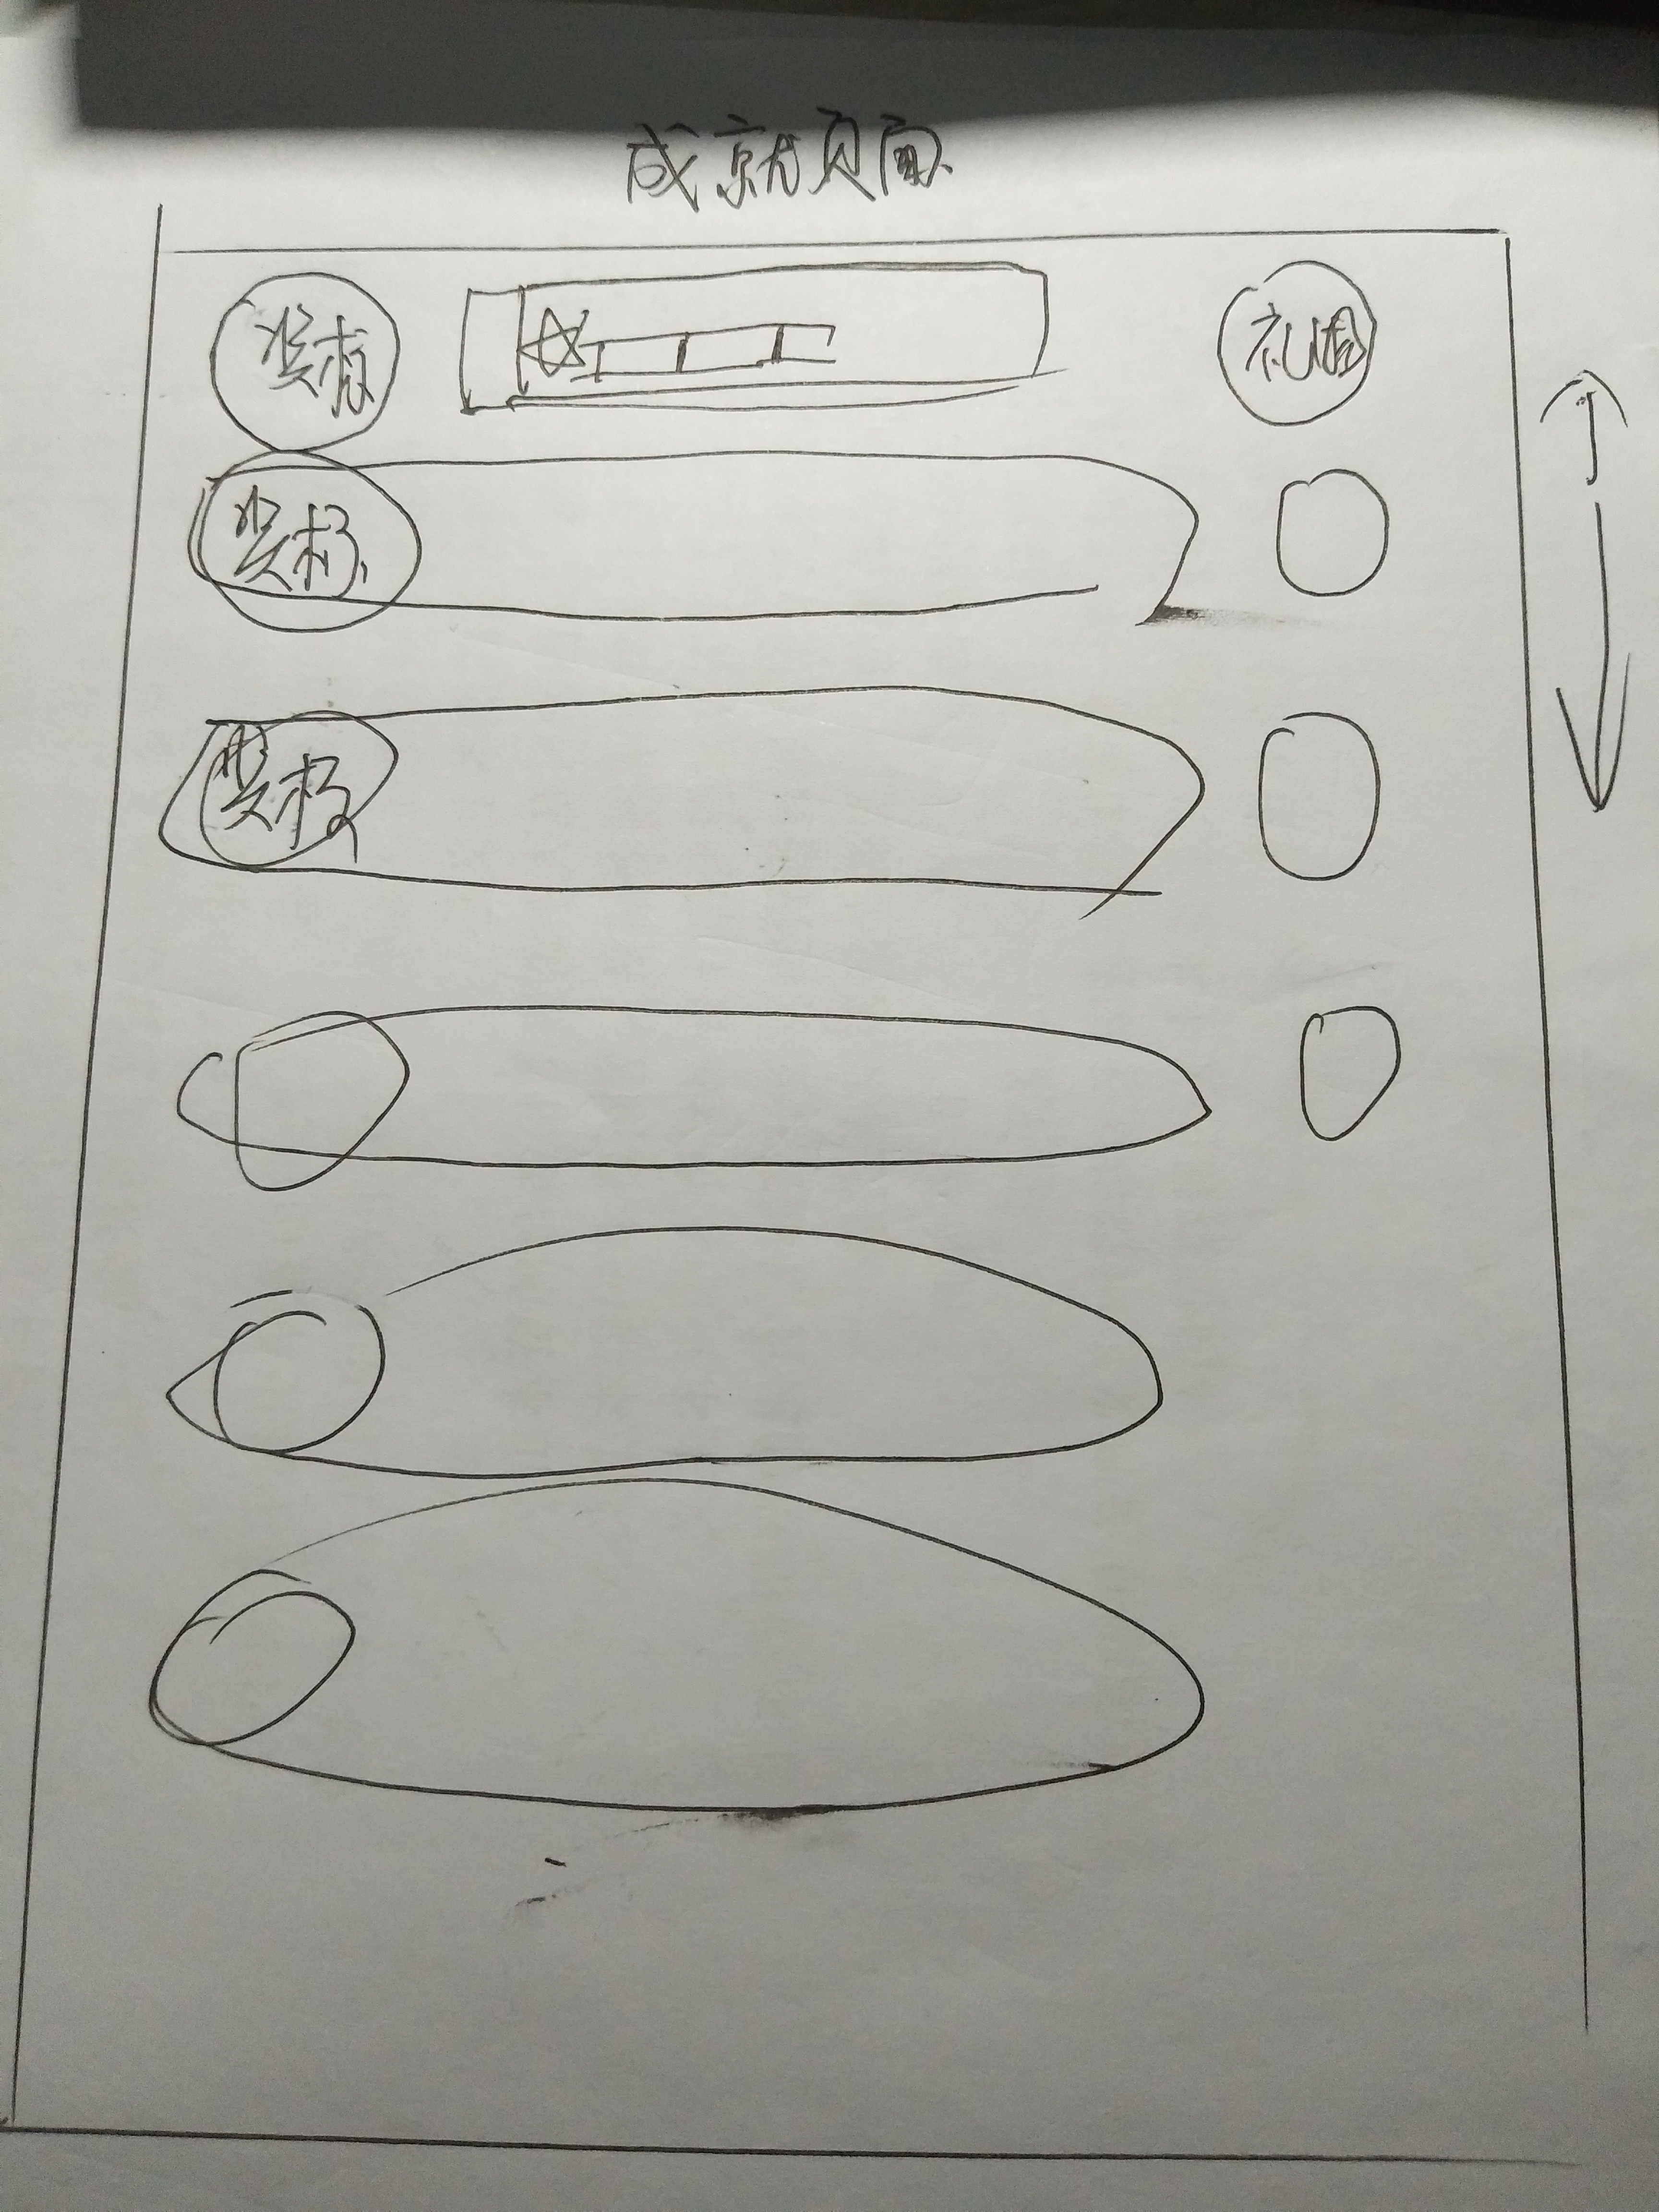 成就页面
奖杯
礼盒
奖杯
奖杯